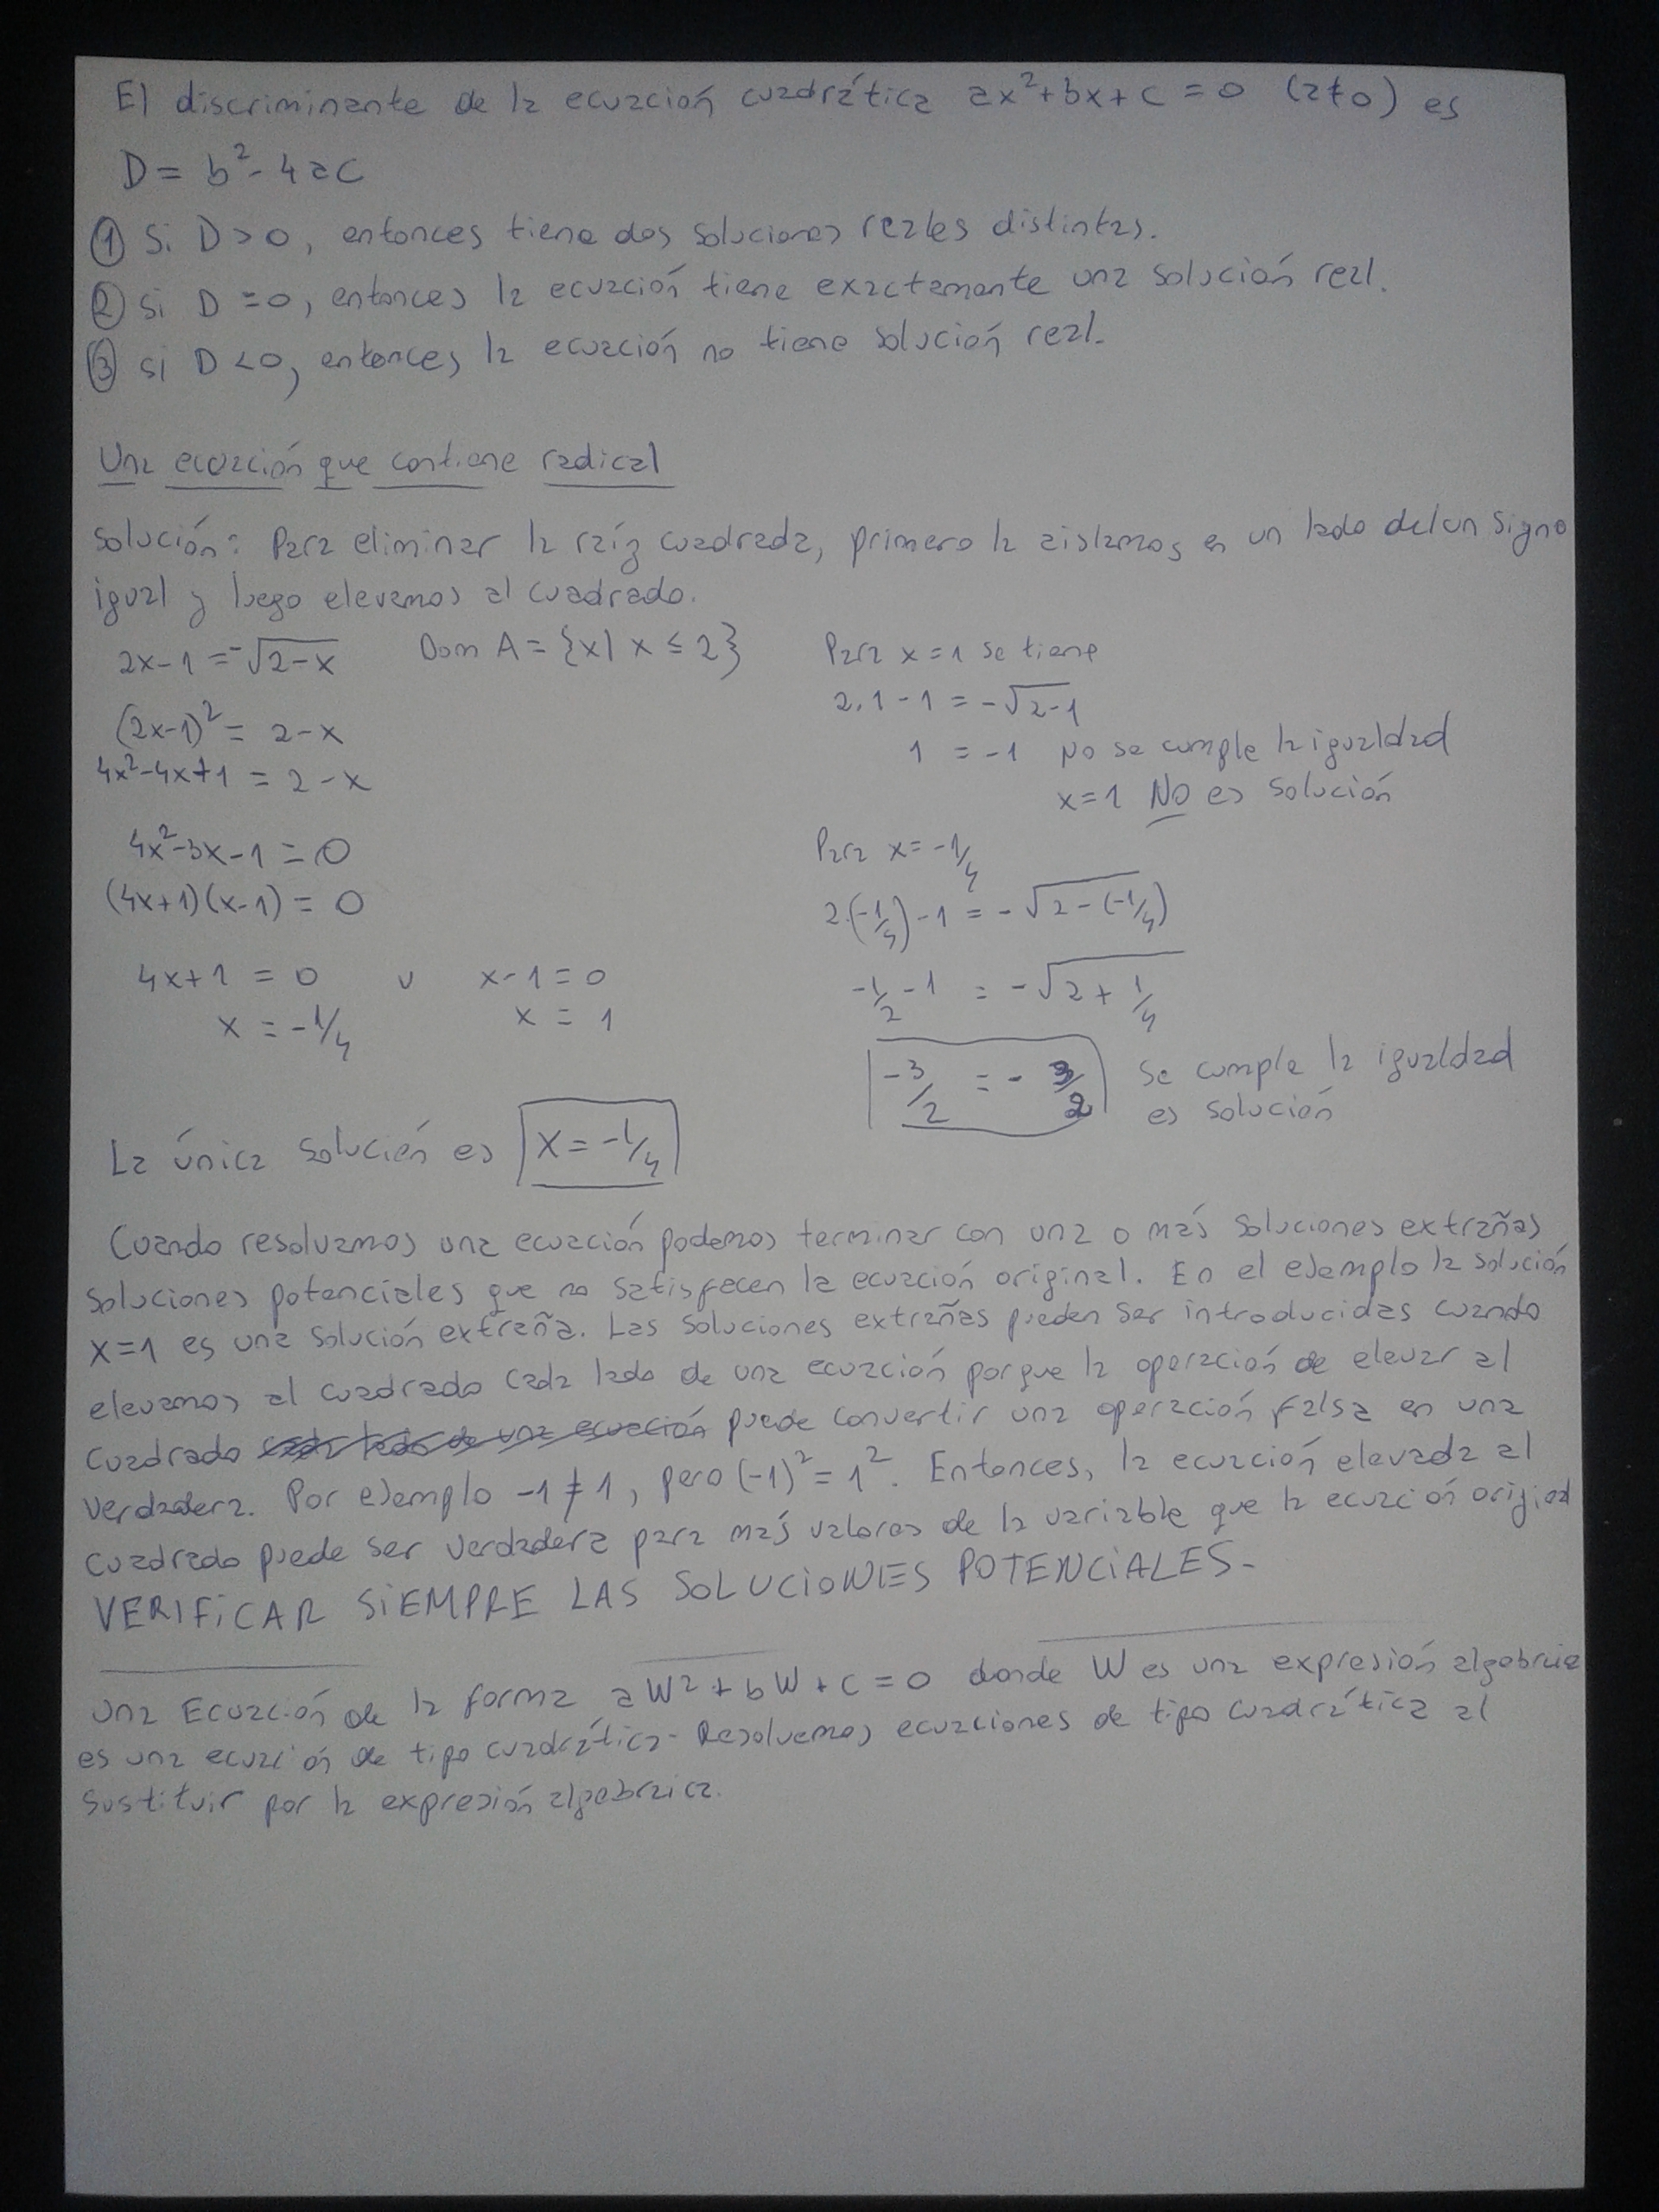 El discriminante de la ecuación cuadrática ax²+bx+c=0 (a≠0) es
D= b²-4ac
① Si D>0, entonces tiene dos soluciones reales distintas.
② Si D=0, entonces la ecuación tiene exactamente una solución real.
③ si D<0, entonces la ecuación no tiene solución real.
Una ecuación que contiene radical
Solución: Para eliminar la raíz cuadrada, primero la aislamos en un lado del un signo
igual y luego elevamos al cuadrado.
2x-1=-√2-x Dom A={x| x≤2}
(2x-1)²= 2-x
4x²-4x+1 = 2-x
4x²-3x-1=0
(4x+1)(x-1)=0
4x+1=0 v x-1=0
x=-1/4 x=1
Para x=1 se tiene
2.1-1=-√2-1
1=-1 No se cumple la igualdad
x=1 NO es solución
Para x=-1/4
2.(-1/4)-1=-√2-(-1/4)
-1/2-1=-√2+1/4
-3/2=-3/2 Se cumple la igualdad
es solución
La única solución es x=-1/4
Cuando resolvamos una ecuación podemos terminar con una o más soluciones extrañas
soluciones potenciales que no satisfacen la ecuación original. En el ejemplo la solución
x=1 es una solución extraña. Las soluciones extrañas pueden ser introducidas cuando
elevamos al cuadrado cada lado de una ecuación porque la operación de elevar al
cuadrado cada lado de una ecuación puede convertir una operación falsa en una
verdadera. Por ejemplo -1≠1, pero (-1)²=1². Entonces, la ecuación elevada al
cuadrado puede ser verdadera para más valores de la variable que la ecuación original
VERIFICAR SIEMPRE LAS SOLUCIONES POTENCIALES-
Una Ecuación de la forma aW²+bW+c=0 donde W es una expresión algebraica
es una ecuación de tipo cuadrática- Resolvemos ecuaciones de tipo cuadrática al
sustituir por la expresión algebraica.